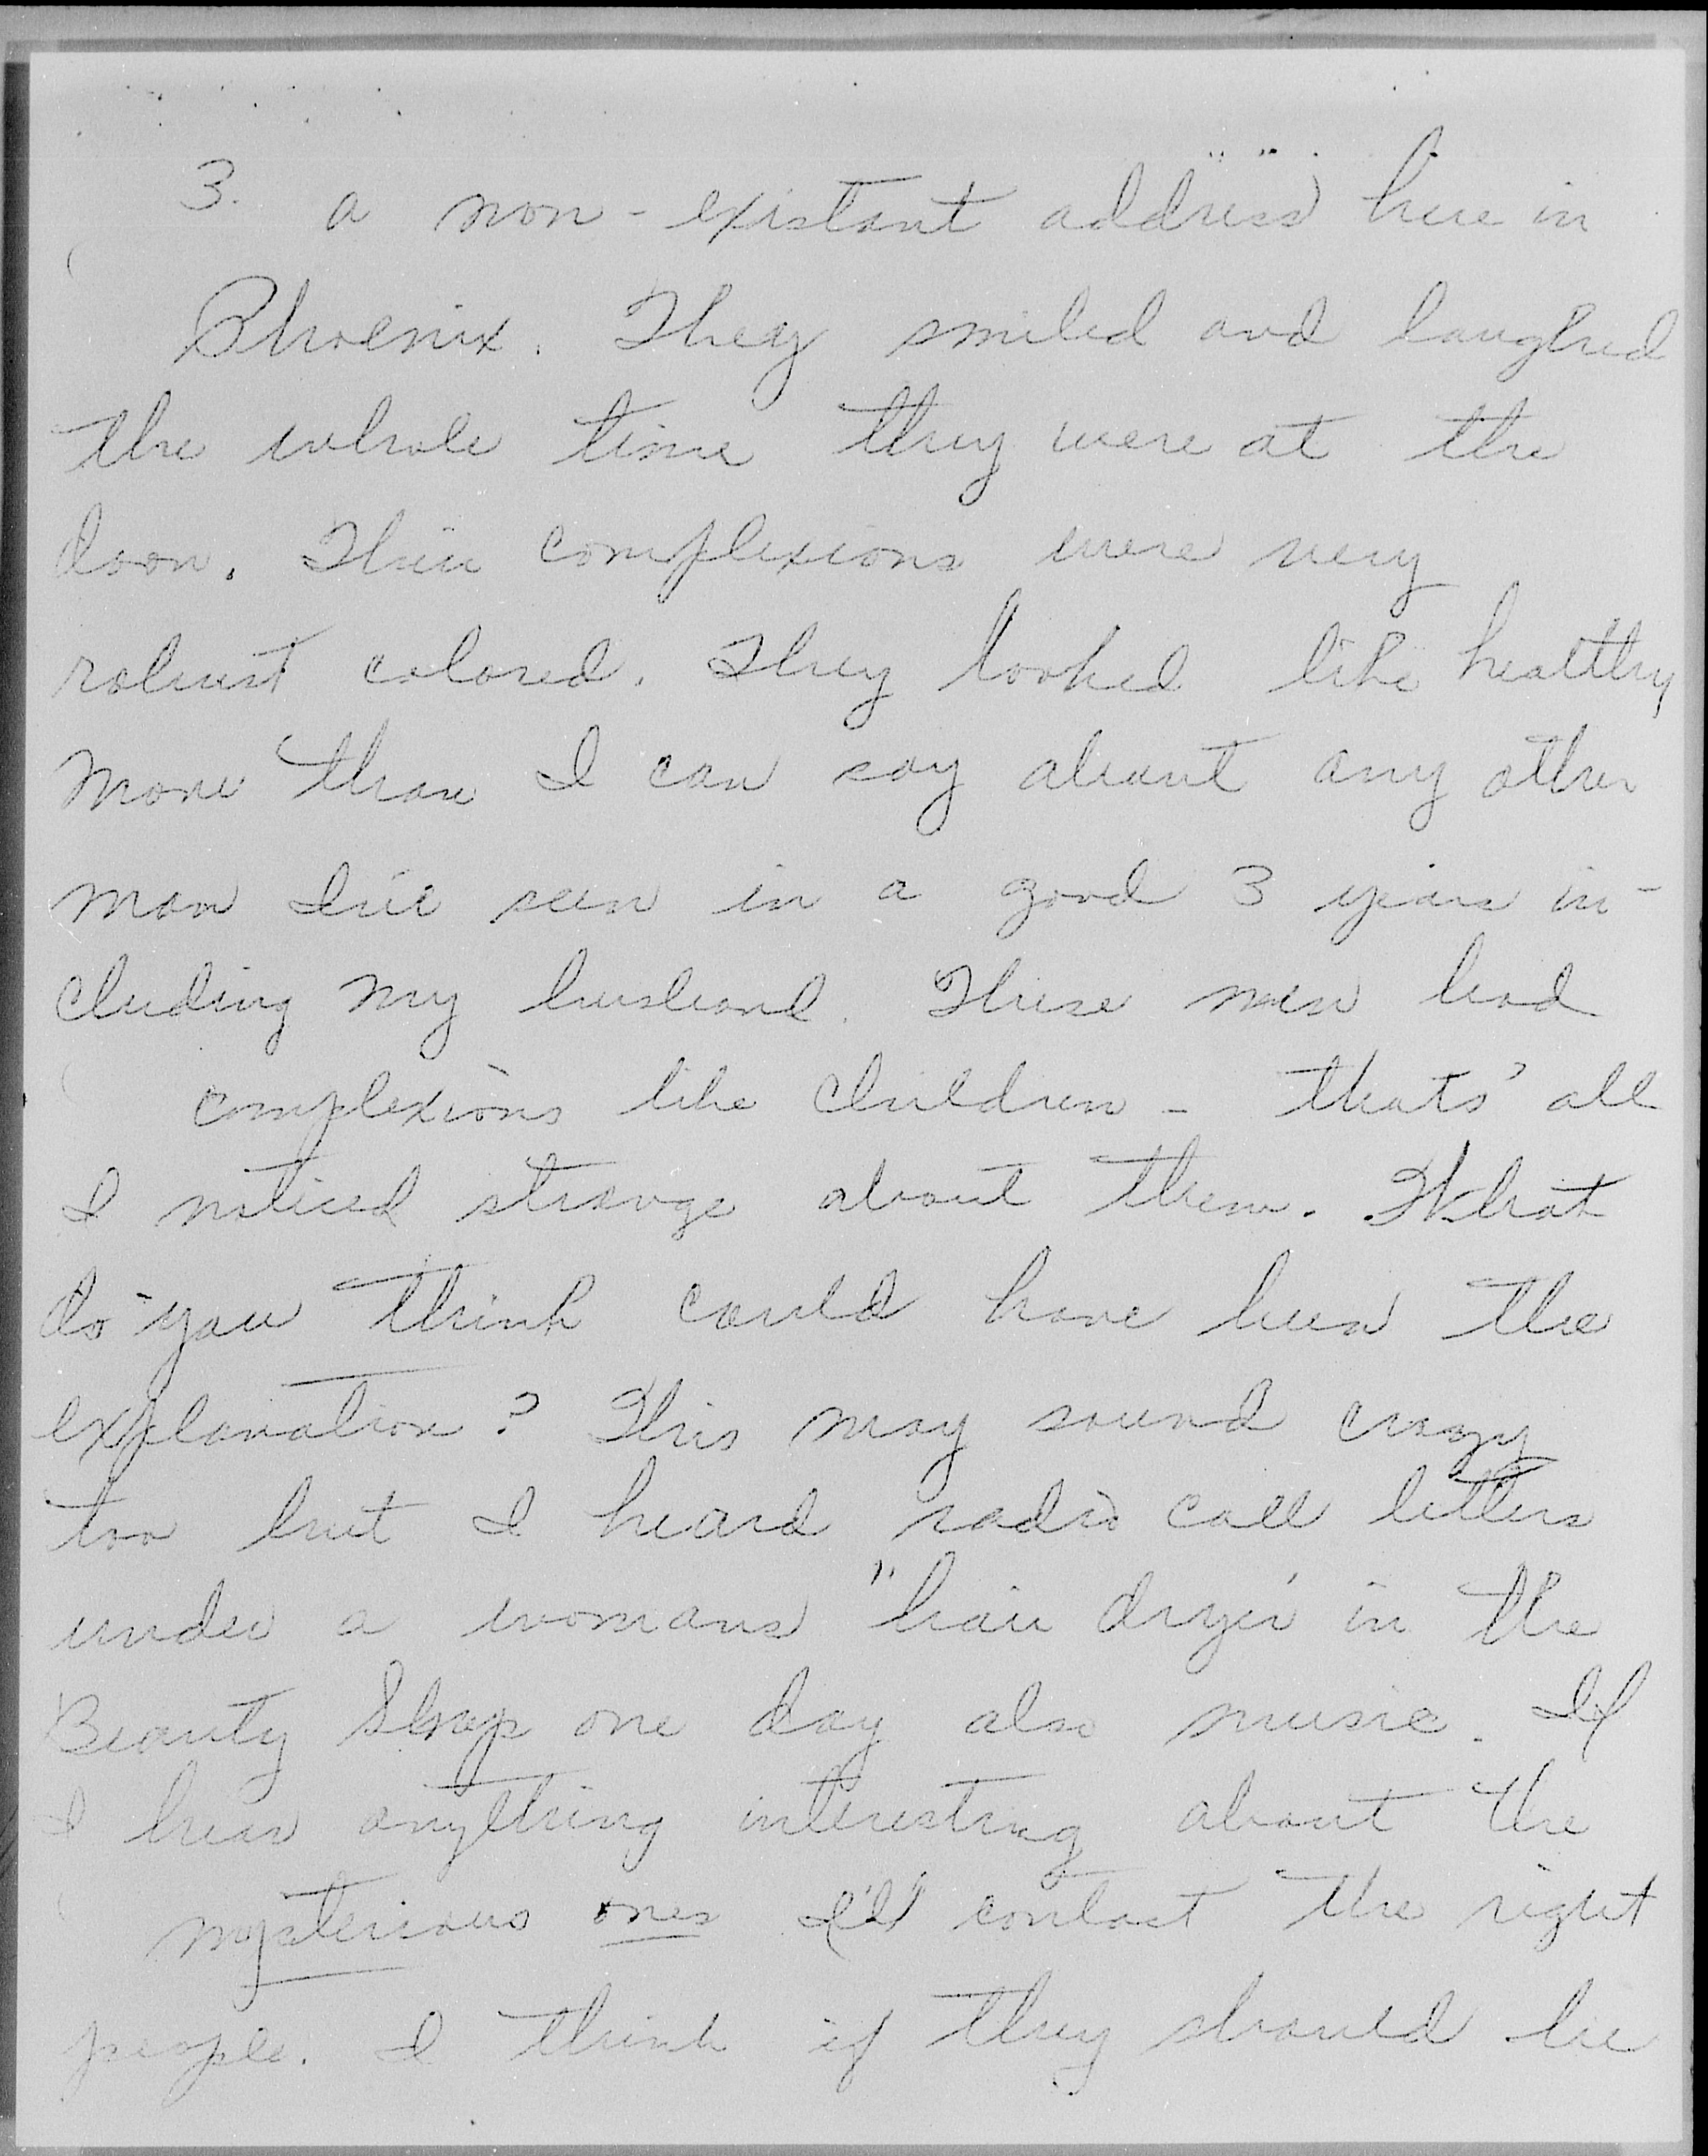 3. a non-existant address here in
Phoenix. They smiled and laughed
the whole time they were at the
door. Their complexions were very
robust colored. They looked like healthy
more than I can say about any other
man I've seen in a good 3 years in-
cluding my husband. These men had
complexions like children - thats' all
I noticed strange about them. What
do you think could have been the
explanation? This may sound crazy
too but I heard radio call letters
under a womans "hair dryer' in the
Beauty Shop one day also music. If
I hear anything interesting about the
mysterious ones I'll contact the right
people. I think if they should be